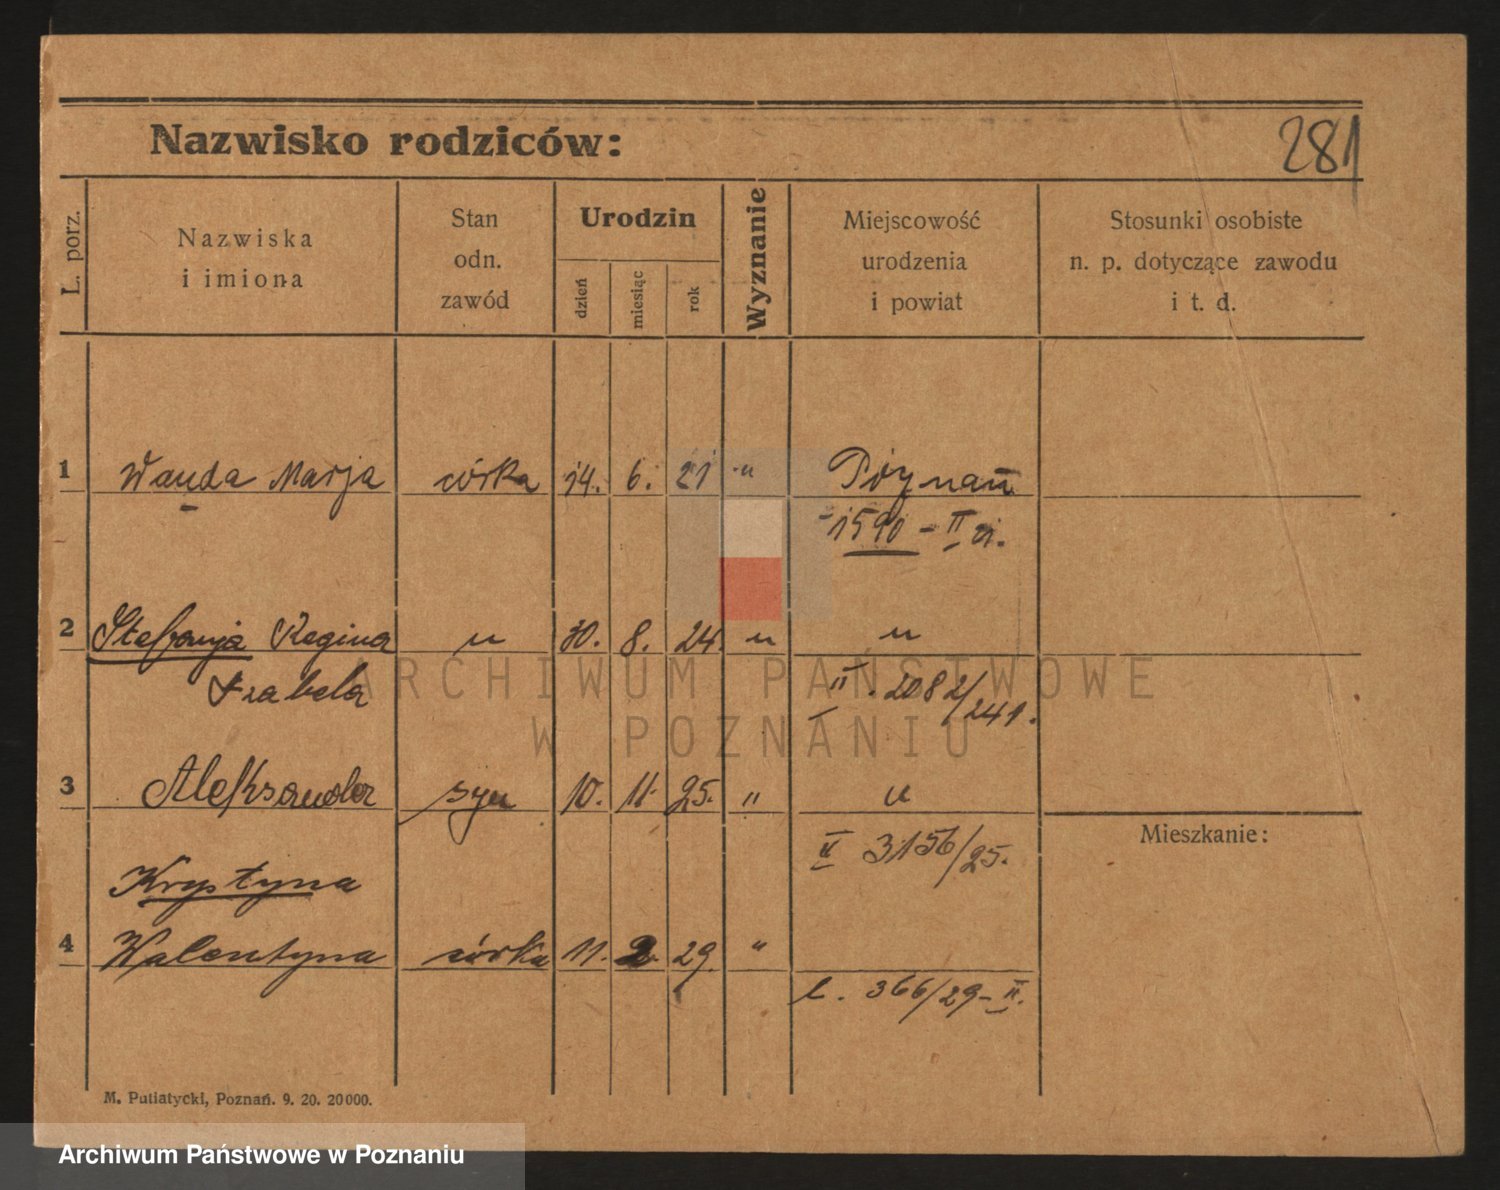 Nazwisko rodziców:
281
L. porz.
Nazwiska
i imiona
Stan
odn.
zawód
Urodzin
dzień
miesiąc
rok
Wyznanie
Miejscowość
urodzenia
i powiat
Stosunki osobiste
n. p. dotyczące zawodu
i t. d.
1 Wanda Marja córka 14. 6. 21 " Poznań
1590 - II
2 Stefanja Regina " 30. 8. 24. " "
Izabela II. 2082/241.
3 Aleksander syn 10. 11. 25. " "
II 3156/25.
Mieszkanie:
Krystyna
4 Walentyna córka 11. 2. 29. "
l. 366/29-II.
M. Putiatycki, Poznań. 9. 20. 20000.
ARCHIWUM PAŃSTWOWE
W POZNANIU
Archiwum Państwowe w Poznaniu